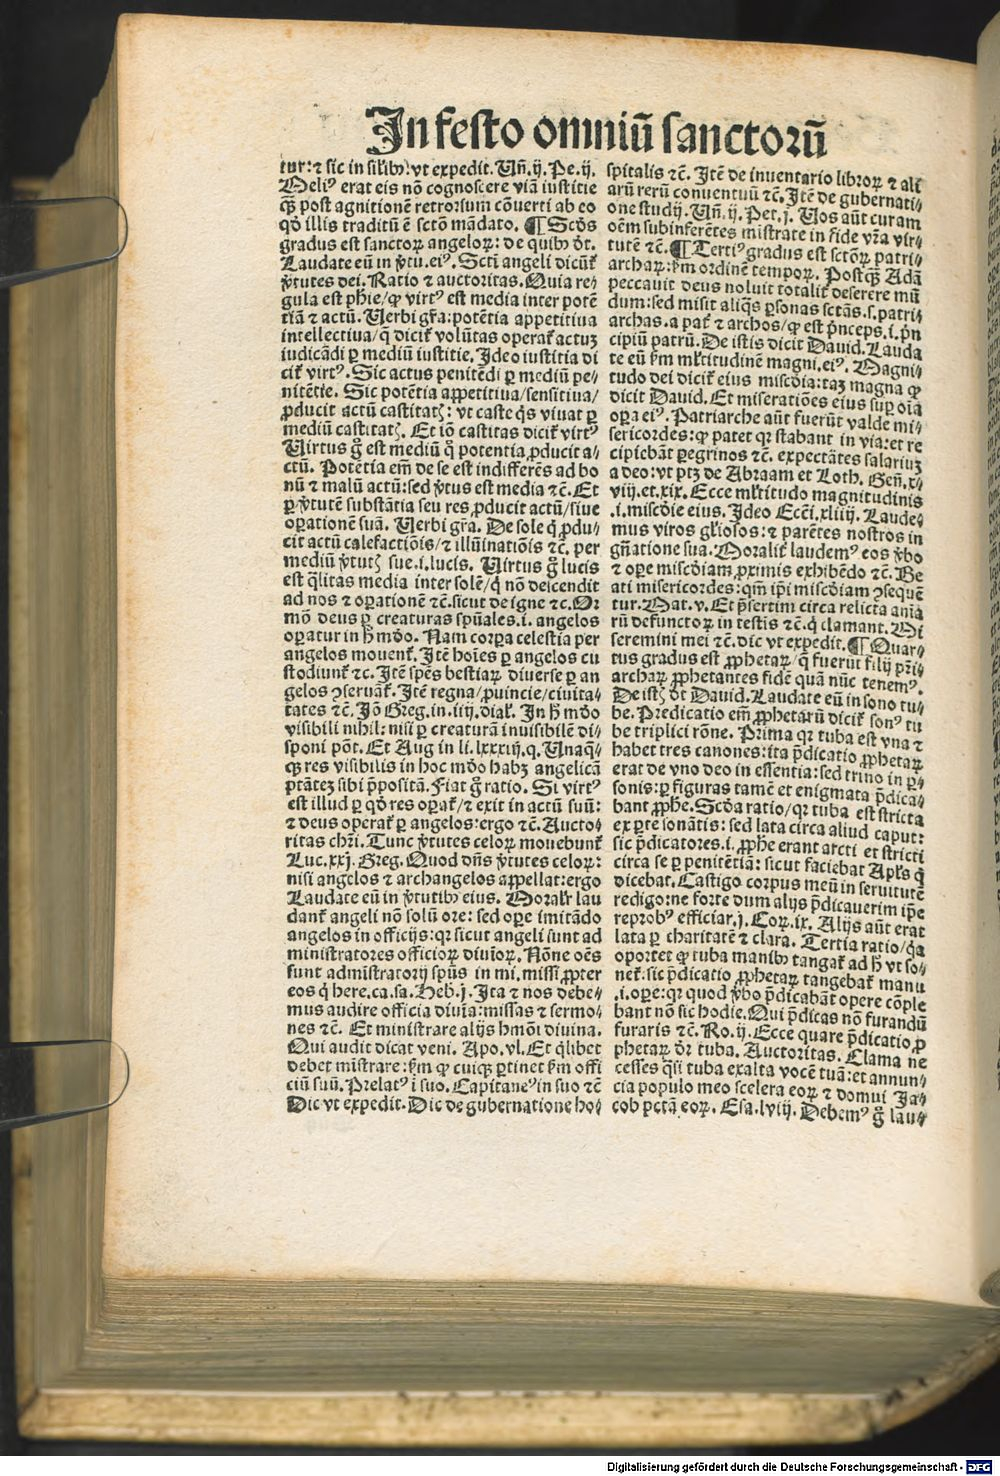 In festo omniū sanctorū
tur: ⁊ sic in silibꝰ vt expedit. Vñ .ij. Pe .ij.
Meliꝰ erat eis nō cognoscere viā iustitie
qꝫ post agnitionē retrorsum cōuerti ab eo
qđ illis traditū ē sctō mādato. ¶ Scđs
gradus est sanctoꝝ angeloꝝ: de quibꝰ dr̄.
Laudate eū in v̄tu. eiꝰ. Scti angeli dicūt᷑
v̄tutes dei. Ratio ⁊ auctoritas. Quia re⸗
gula est ph̄ie/ ꝙ virtꝰ est media inter potē
tiā ⁊ actū. Verbi gr̄a: potētia appetitiua
intellectiua/ q̄ dicit᷑ volūtas operat᷑ actuꝫ
iudicādi ꝑ mediū iustitie. Ideo iustitia di
cit᷑ virtꝰ. Sic actus penitēdi ꝑ mediū pe⸗
nitētie. Sic potētia appetitiua/ sensitiua/
ꝓducit actū castitatꝭ: vt caste q̄s viuat ꝑ
mediū castitatꝭ. Et iō castitas dicit᷑ virtꝰ
Virtus g̊ est mediū q̊ potentia ꝓducit a⸗
ctū. Potētia em̄ de se est indifferēs ad bo
nū ⁊ malū actū: sed v̄tus est media ⁊c̄. Et
ꝑ v̄tutē substātia seu res ꝓducit actū/ siue
oꝑationē suā. Verbi gr̄a. De sole q̄ ꝓdu⸗
cit actū calefactiōis/ ⁊ illūinatiōis ⁊c̄. per
mediū v̄tutꝭ sue .i. lucis. Virtus g̊ lucis
est q̄litas media inter solē/ q̄ nō descendit
ad nos ⁊ oꝑationē ⁊c̄. sicut de igne ⁊c. Or
mō deus ꝑ creaturas spūales .i. angelos
oꝑatur in h̊ mūdo. Nam corꝑa celestia per
angelos mouent᷑. Itē hoīes ꝑ angelos cu
stodiunt᷑ ⁊c. Itē spēs bestiaꝝ diuerse ꝑ an
gelos ꝯseruāt᷑. Itē regna/ ꝓuincie/ ciuita⸗
tates ⁊c̄. Iō Greg. in .iiij. dial᷑. In h̊ mūdo
visibili nihil: nisi ꝑ creaturā inuisibilē di⸗
sponi pōt. Et Aug in li. lxxxiij. q. Vnaq̄⸗
qꝫ res visibilis in hoc mūdo habꝫ angelicā
ptātē sibi p̄positā. Fiat g̊ ratio. Si virtꝰ
est illud ꝑ qđ res oꝑat᷑/ ⁊ exit in actū suū:
⁊ deus operat᷑ ꝑ angelos: ergo ⁊c̄. Aucto⸗
ritas chr̄i. Tunc v̄tutes celoꝝ mouebunt᷑
Luc. xxj. Greg. Quod dn̄s v̄tutes celoꝝ:
nisi angelos ⁊ archangelos appellat: ergo
Laudate eū in v̄tutibꝰ eius. Moralr̄ lau
dant᷑ angeli nō solū ore: sed oꝑe imitādo
angelos in officijs: qꝛ sicut angeli sunt ad
ministratores officioꝝ diuīoꝝ. Nōne oēs
sunt admīstratorij spūs in mi. missi ꝓpter
eos q̄ here. ca. sa. Heb. j. Ita ⁊ nos debe⸗
mus audire officia diuīa: missas ⁊ sermo⸗
nes ⁊c̄. Et ministrare alijs hmōi diuina.
Qui audit dicat veni. Apo. vl. Et q̄libet
debet mīstrare: km̄ ꝙ cuiqꝫ ꝑtinet km̄ offi
ciū suū. Prelatꝰ ī suo. Capitaneꝰ in suo ⁊c̄
Dic vt expedit. Dic de gubernatione ho⸗
spitalis ⁊c̄. Itē de inuentario libroꝝ ⁊ ali
arū rerū conuentuū ⁊c̄. Itē de gubernati⸗
one studij. Vñ .ij. Pet. j. Vos aūt curam
oēm subinferētes mīstrate in fide vr̄a vir⸗
tutē ⁊c̄. ¶ Tertiꝰ gradus est sctōꝝ patri⸗
archaꝝ: km̄ ordinē tempoꝝ. Postqꝫ Adā
peccauit deus noluit totalit᷑ deserere mū
dum: sed misit aliq̄s ꝑsonas sctās .s. patri⸗
archas. a pat᷑ ⁊ archos/ ꝙ est p̄nceps .i. p̄n
cipiū patrū. De istis dicit Dauid. Lauda
te eū km̄ ml᷑titudinē magni. eiꝰ. Magni⸗
tudo dei dicit᷑ eius misc̄dia: taꝫ magna ꝙ
dicit Dauid. Et miseratiōes eius suꝑ oīa
oꝑa eiꝰ. Patriarche aūt fuerūt valde mi⸗
sericordes: ꝙ patet qꝛ stabant in via: et re
cipiebāt ꝑegrinos ⁊c̄. expectātes salariuꝫ
a deo: vt ptꝫ de Abraam et Loth. Geñ. x⸗
viij. et. xix. Ecce ml᷑titudo magnitudinis
.i. misc̄die eius. Ideo Ecc̄i. xliiij. Laude⸗
mus viros gl̄iosos: ⁊ parētes nostros in
gn̄atione sua. Moralit᷑ laudemꝰ eos v̄bo
⁊ oꝑe misc̄diam ꝓximis exhibēdo ⁊c̄. Be
ati misericordes: qm̄ ip̄i misc̄diam ꝯsequē
tur. Mat. v. Et p̄sertim circa relicta aīa
rū defunctoꝝ in testis ⁊c̄. q̄ clamant. Mi
seremini mei ⁊c̄. dic vt expedit. ¶ Quar⸗
tus gradus est ꝓphetaꝝ/ q̄ fuerūt filij pr̄i⸗
archaꝝ ꝓphetantes fidē quā nūc tenemꝰ.
De istꝭ dr̄ Dauid. Laudate eū in sono tu⸗
be. Predicatio em̄ ꝓphetarū dicit᷑ sonꝰ tu
be triplici rōne. Prima qꝛ tuba est vna ⁊
habet tres canones: ita p̄dicatio ꝓphetaꝝ
erat de vno deo in essentia: sed trino in ꝑ⸗
sonis: ꝑ figuras tamē et enigmata p̄dica⸗
bant ꝓphe. Scđa ratio/ qꝛ tuba est stricta
ex ꝑte sonātis: sed lata circa aliud caput:
sic p̄dicatores .i. ꝓphe erant arcti et stricti
circa se ꝑ penitētiā: sicut faciebat Apl̄s q̄
dicebat. Castigo corpus meū in seruitutē
redigo: ne forte dum alijs p̄dicauerim ip̄e
reprobꝰ efficiar. j. Coꝝ. ix. Alijs aūt erat
lata ꝑ charitatē ⁊ clara. Tertia ratio/ q̄a
oportet ꝙ tuba manibꝰ tangat᷑ ad h̊ vt so⸗
net᷑. sic p̄dicatio ꝓphetaꝝ tangebat᷑ manu
.i. oꝑe: qꝛ quod v̄bo p̄dicabāt opere cōple
bant nō sic hodie. Qui p̄dicas nō furandū
furaris ⁊c̄. Ro. ij. Ecce quare p̄dicatio ꝓ
phetaꝝ dr̄ tuba. Auctoritas. Clama ne
cesses q̄si tuba exalta vocē tuā: et annun⸗
cia populo meo scelera eoꝝ ⁊ domui Ja⸗
cob pctā eoꝝ. Esa. lviij. Debemꝰ g̊ lau⸗
Digitalisierung gefördert durch die Deutsche Forschungsgemeinschaft - DFG